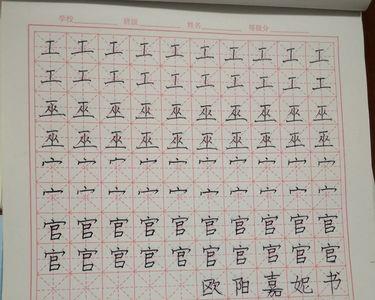 学校 班级 姓名 等级分
工 工 工 工 工 工 工 工 工 工
工 工 工 工 工 工 工 工 工 工
巫 巫 巫 巫 巫 巫 巫 巫 巫 巫
巫 巫 巫 巫 巫 巫 巫 巫 巫 巫
宀 宀 宀 宀 宀 宀 宀 宀 宀 宀
宀 宀 宀 宀 宀 宀 宀 宀 宀 宀
官 官 官 官 官 官 官 官 官 官
官 官 官 官 官 官 官 官 官 官
欧 阳 嘉 妮 书